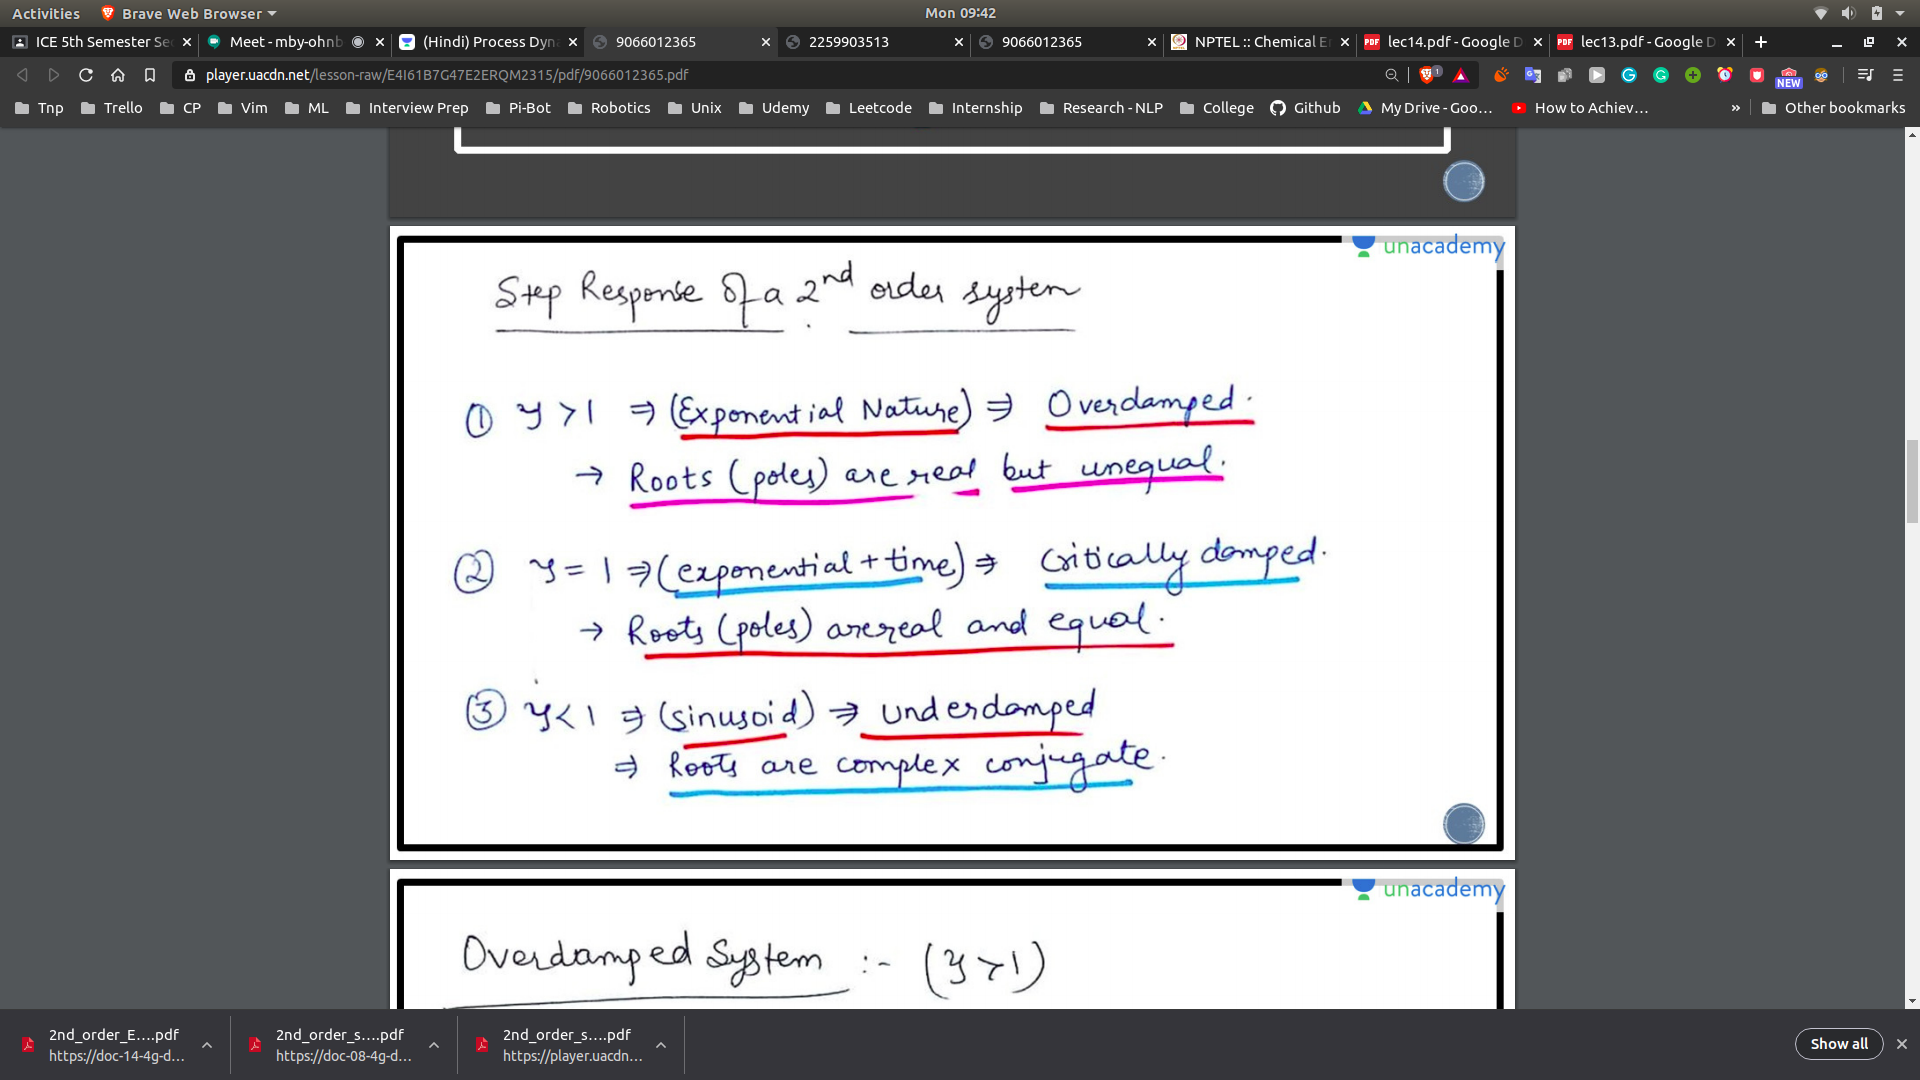 Activities Brave Web Browser Mon 09:42
ICE 5th Semester Sec Meet - mby-ohnb (Hindi) Process Dyna 9066012365 2259903513 9066012365 NPTEL :: Chemical E lec14.pdf - Google D lec13.pdf - Google D
player.uacdn.net/lesson-raw/E4I61B7G47E2ERQM2315/pdf/9066012365.pdf 1 NEW
Tnp Trello CP Vim ML Interview Prep Pi-Bot Robotics Unix Udemy Leetcode Internship Research - NLP College Github My Drive - Goo... How to Achiev... » Other bookmarks
unacademy
Step Response Of a 2nd order system
① ζ > 1 ⇒ (Exponential Nature) ⇒ Overdamped.
→ Roots (poles) are real but unequal.
② ζ = 1 ⇒ (exponential + time) ⇒ Critically damped.
→ Roots (poles) are real and equal.
③ ζ < 1 ⇒ (sinusoid) ⇒ underdamped
⇒ Roots are complex conjugate.
unacademy
Overdamped System :- (ζ > 1)
2nd_order_E....pdf 2nd_order_s....pdf 2nd_order_s....pdf Show all
https://doc-14-4g-d... https://doc-08-4g-d... https://player.uacdn...